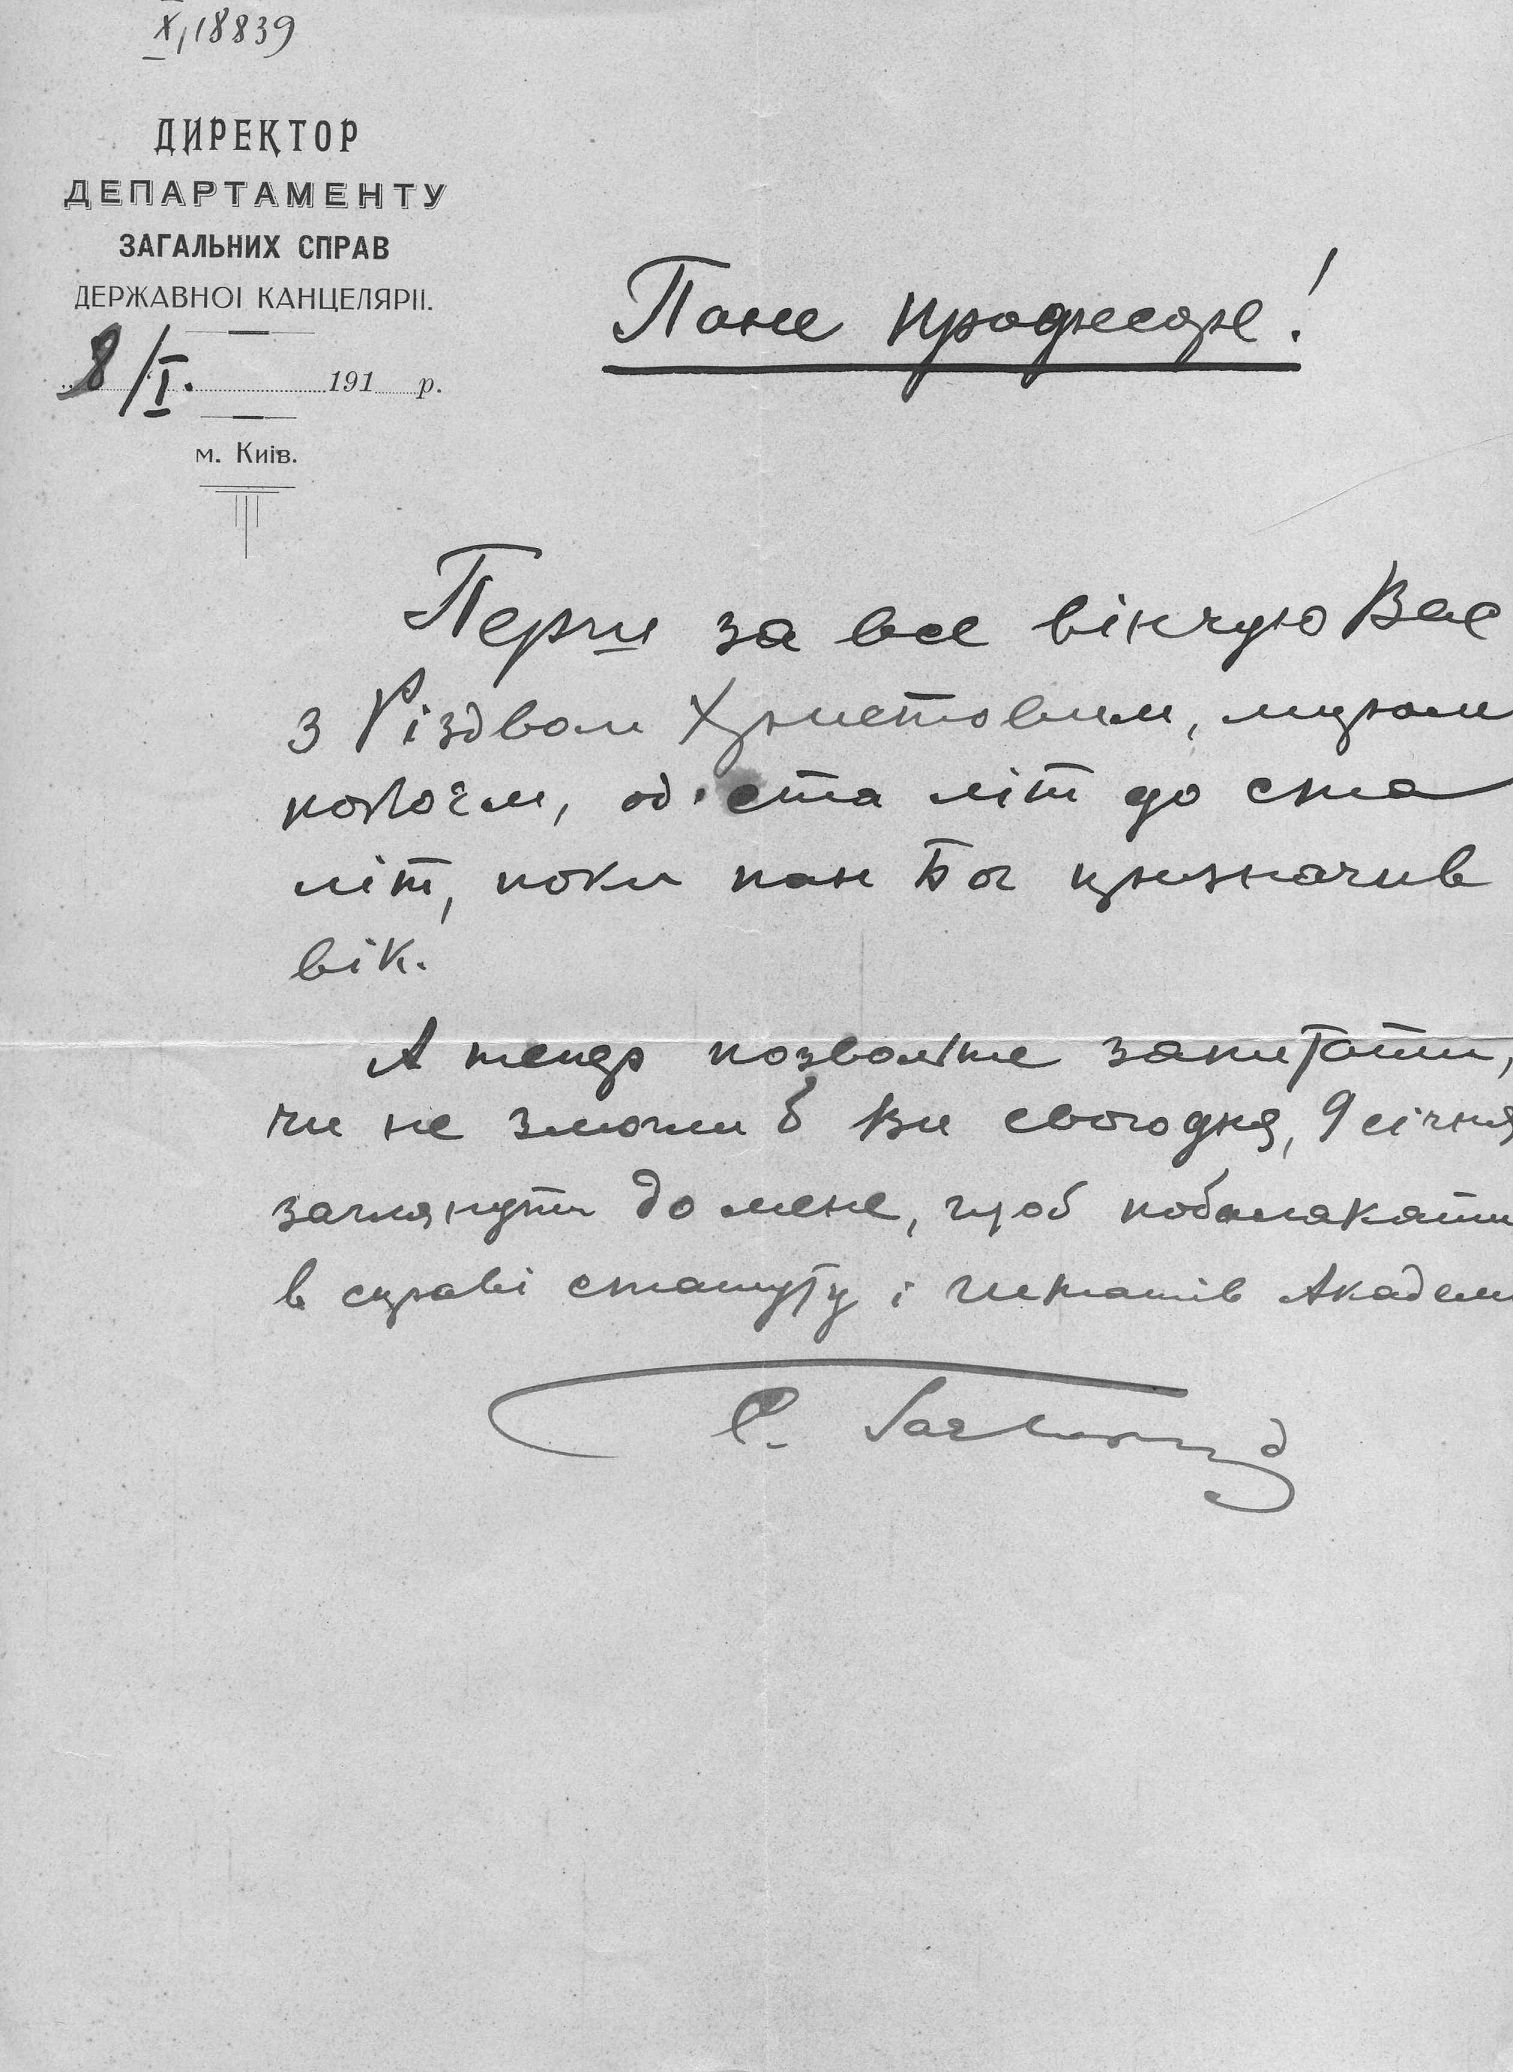 X, 18839
ДИРЕКТОР
ДЕПАРТАМЕНТУ
ЗАГАЛЬНИХ СПРАВ
ДЕРЖАВНОІ КАНЦЕЛЯРІІ.
8/I. 191 р.
м. Київ.
Пане професоре!
Перш за все вінчую Вас
з Різдвом Христовим,
од ста літ до ста
літ, поки пан Бог призначив
вік.
А тепер позвольте запитати,
чи не змогли б Ви сьогодня, 9 січня
заглянути до мене, щоб побалакати
в справі статуту і штатів Академ